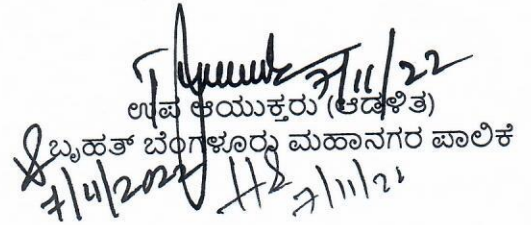 7/11/22
ಉಪ ಆಯುಕ್ತರು (ಆಡಳಿತ)
ಬೃಹತ್ ಬೆಂಗಳೂರು ಮಹಾನಗರ ಪಾಲಿಕೆ
7/11/2022 7/11/22